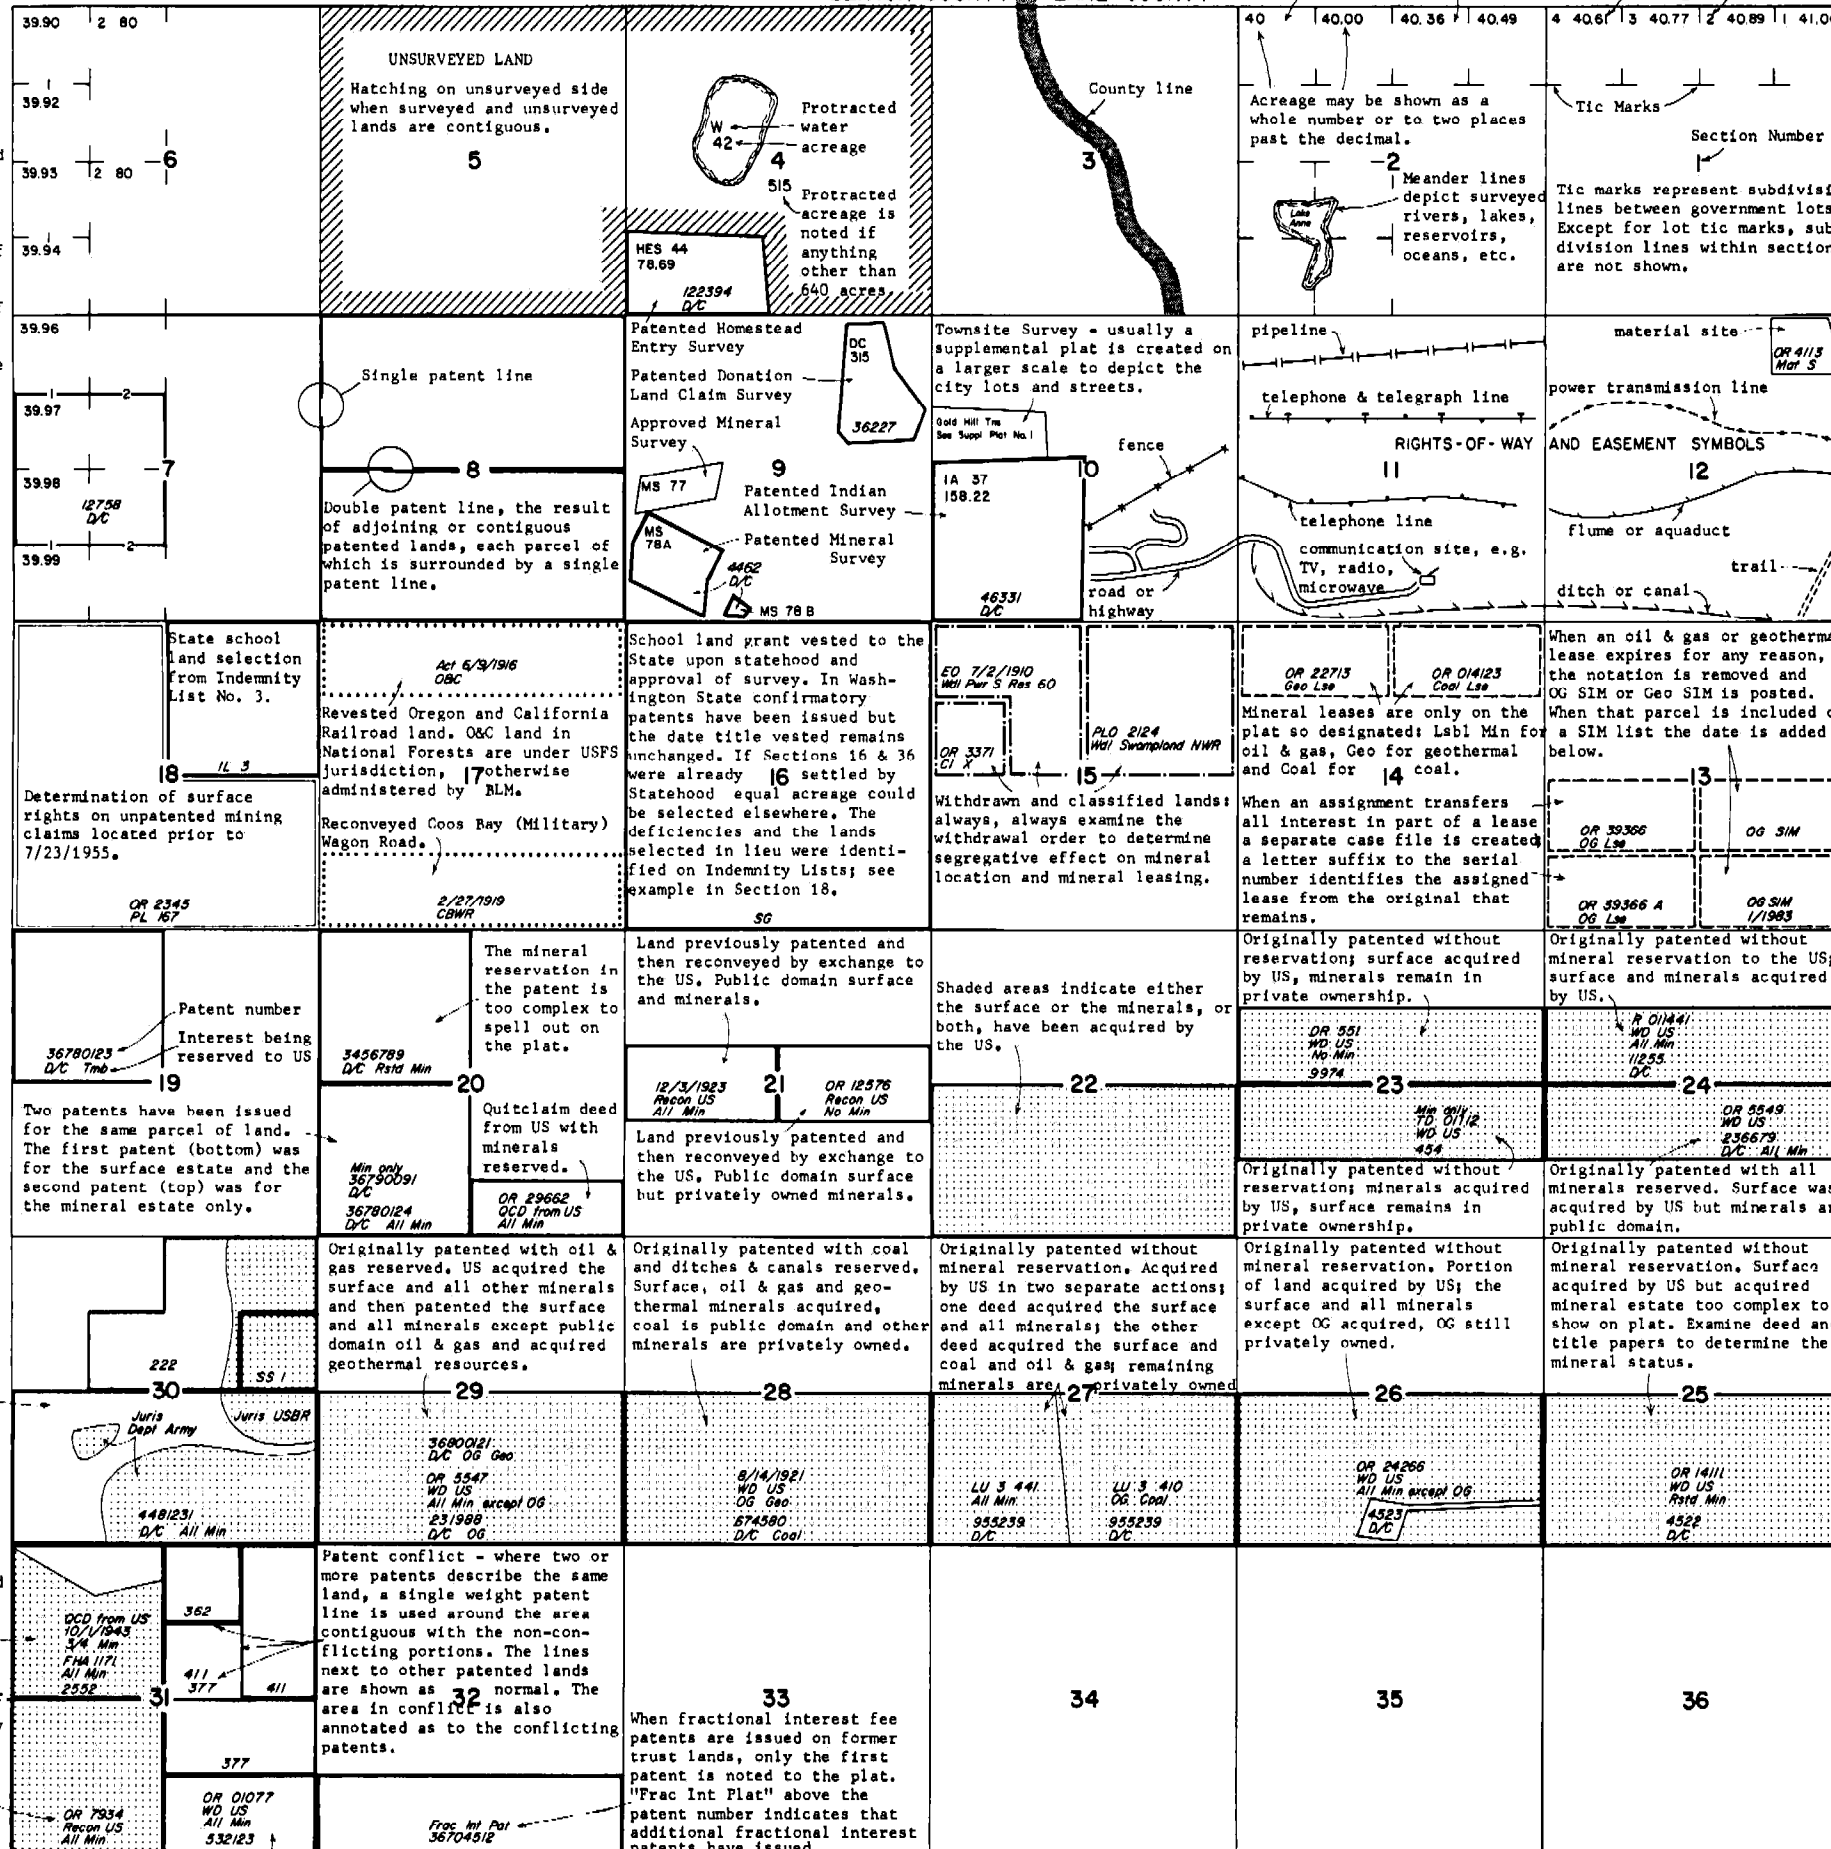 39.90 2 80
39.92
39.93 2 80
39.94
6
UNSURVEYED LAND
Hatching on unsurveyed side
when surveyed and unsurveyed
lands are contiguous.
5
W
42
Protracted
water
acreage
4
515
Protracted
acreage is
noted if
anything
other than
640 acres.
HES 44
78.69
122394
D/C
County line
3
40 40.00 40.36 40.49
Acreage may be shown as a
whole number or to two places
past the decimal.
2
Meander lines
depict surveyed
rivers, lakes,
reservoirs,
oceans, etc.
Lake
Anne
4 40.61 3 40.77 2 40.89 1
Tic Marks
Section Number
1
Tic marks represent
lines between government lots
Except for lot tic marks,
division lines within section
are not shown.
39.96
1 2
39.97
39.98
7
12758
D/C
1 2
39.99
Single patent line
8
Double patent line, the result
of adjoining or contiguous
patented lands, each parcel of
which is surrounded by a single
patent line.
Patented Homestead
Entry Survey
Patented Donation
Land Claim Survey
Approved Mineral
Survey
DC
315
36227
9
MS 77
Patented Indian
Allotment Survey
MS
78A
Patented Mineral
Survey
4462
D/C
MS 78 B
Townsite Survey - usually a
supplemental plat is created on
a larger scale to depict the
city lots and streets.
Gold Hill Tns
See Suppl Plat No. 1
fence
10
IA 37
158.22
46331
D/C
road or
highway
pipeline
telephone & telegraph line
RIGHTS-OF-WAY AND EASEMENT SYMBOLS
11
telephone line
communication site, e.g.
TV, radio,
microwave
material site
OR 4113
Mat S
power transmission line
12
flume or aquaduct
trail
ditch or canal
State school
land selection
from Indemnity
List No. 3.
IL 3
18
Determination of surface
rights on unpatented mining
claims located prior to
7/23/1955.
OR 2345
PL 167
Act 6/9/1916
O&C
Revested Oregon and California
Railroad land. O&C land in
National Forests are under USFS
jurisdiction, 17 otherwise
administered by BLM.
Reconveyed Coos Bay (Military)
Wagon Road.
2/27/1919
CBWR
School land grant vested to the
State upon statehood and
approval of survey. In Wash-
ington State confirmatory
patents have been issued but
the date title vested remains
unchanged. If Sections 16 & 36
were already 16 settled by
Statehood equal acreage could
be selected elsewhere. The
deficiencies and the lands
selected in lieu were identi-
fied on Indemnity Lists; see
example in Section 18.
SG
EO 7/2/1910
Wdl Pwr S Res 60
OR 3371
Cl X
PLO 2124
Wdl Swampland NWR
15
Withdrawn and classified lands:
always, always examine the
withdrawal order to determine
segregative effect on mineral
location and mineral leasing.
OR 22713
Geo Lse
OR 014123
Coal Lse
Mineral leases are only on the
plat so designated: Lsbl Min for
oil & gas, Geo for geothermal
and Coal for 14 coal.
When an assignment transfers
all interest in part of a lease
a separate case file is created;
a letter suffix to the serial
number identifies the assigned
lease from the original that
remains.
When an oil & gas or
lease expires for any reason,
the notation is removed and
OG SIM or Geo SIM is posted.
When that parcel is included
a SIM list the date is added
below.
13
OR 39366
OG Lse
OG SIM
OR 39366 A
OG Lse
OG SIM
1/1983
Patent number
Interest being
reserved to US
36780123
D/C Tmb
19
Two patents have been issued
for the same parcel of land.
The first patent (bottom) was
for the surface estate and the
second patent (top) was for
the mineral estate only.
The mineral
reservation in
the patent is
too complex to
spell out on
the plat.
3456789
D/C Rstd Min
20
Quitclaim deed
from US with
minerals
reserved.
Min only
36790091
D/C
36780124
D/C All Min
OR 29662
QCD from US
All Min
Land previously patented and
then reconveyed by exchange to
the US. Public domain surface
and minerals.
12/3/1923
Recon US
All Min
21
OR 12576
Recon US
No Min
Land previously patented and
then reconveyed by exchange to
the US. Public domain surface
but privately owned minerals.
Shaded areas indicate either
the surface or the minerals, or
both, have been acquired by
the US.
22
Originally patented without
reservation; surface acquired
by US, minerals remain in
private ownership.
OR 551
WD US
No Min
9974
23
Min only
TD 01112
WD US
454
Originally patented without
reservation; minerals acquired
by US, surface remains in
private ownership.
Originally patented without
mineral reservation to the US;
surface and minerals acquired
by US.
R 011441
WD US
All Min
11255
D/C
24
OR 5549
WD US
236679
D/C All Min
Originally patented with all
minerals reserved. Surface was
acquired by US but minerals
public domain.
222
SS 1
30
Juris
Dept Army
Juris USBR
4481231
D/C All Min
Originally patented with oil &
gas reserved. US acquired the
surface and all other minerals
and then patented the surface
and all minerals except public
domain oil & gas and acquired
geothermal resources.
29
36800121
D/C OG Geo
OR 5547
WD US
All Min except OG
231988
D/C OG
Originally patented with coal
and ditches & canals reserved.
Surface, oil & gas and geo-
thermal minerals acquired,
coal is public domain and other
minerals are privately owned.
28
8/14/1921
WD US
OG Geo
674580
D/C Coal
Originally patented without
mineral reservation. Acquired
by US in two separate actions;
one deed acquired the surface
and all minerals; the other
deed acquired the surface and
coal and oil & gas; remaining
minerals are 27 privately owned
LU 3 441
All Min
955239
D/C
LU 3 410
OG Coal
955239
D/C
Originally patented without
mineral reservation. Portion
of land acquired by US; the
surface and all minerals
except OG acquired, OG still
privately owned.
26
OR 24266
WD US
All Min except OG
4523
D/C
Originally patented without
mineral reservation. Surface
acquired by US but acquired
mineral estate too complex to
show on plat. Examine deed
title papers to determine the
mineral status.
25
OR 14111
WD US
Rstd Min
4522
D/C
QCD from US
10/1/1943
3/4 Min
FHA 1171
All Min
2552
362
411
377
411
31
377
OR 7934
Recon US
All Min
OR 01077
WD US
All Min
532123
Patent conflict - where two or
more patents describe the same
land, a single weight patent
line is used around the area
contiguous with the non-con-
flicting portions. The lines
next to other patented lands
are shown as 32 normal. The
area in conflict is also
annotated as to the conflicting
patents.
Frac Int Pat
36704512
33
When fractional interest fee
patents are issued on former
trust lands, only the first
patent is noted to the plat.
"Frac Int Plat" above the
patent number indicates that
additional fractional interest
patents have issued
34
35
36